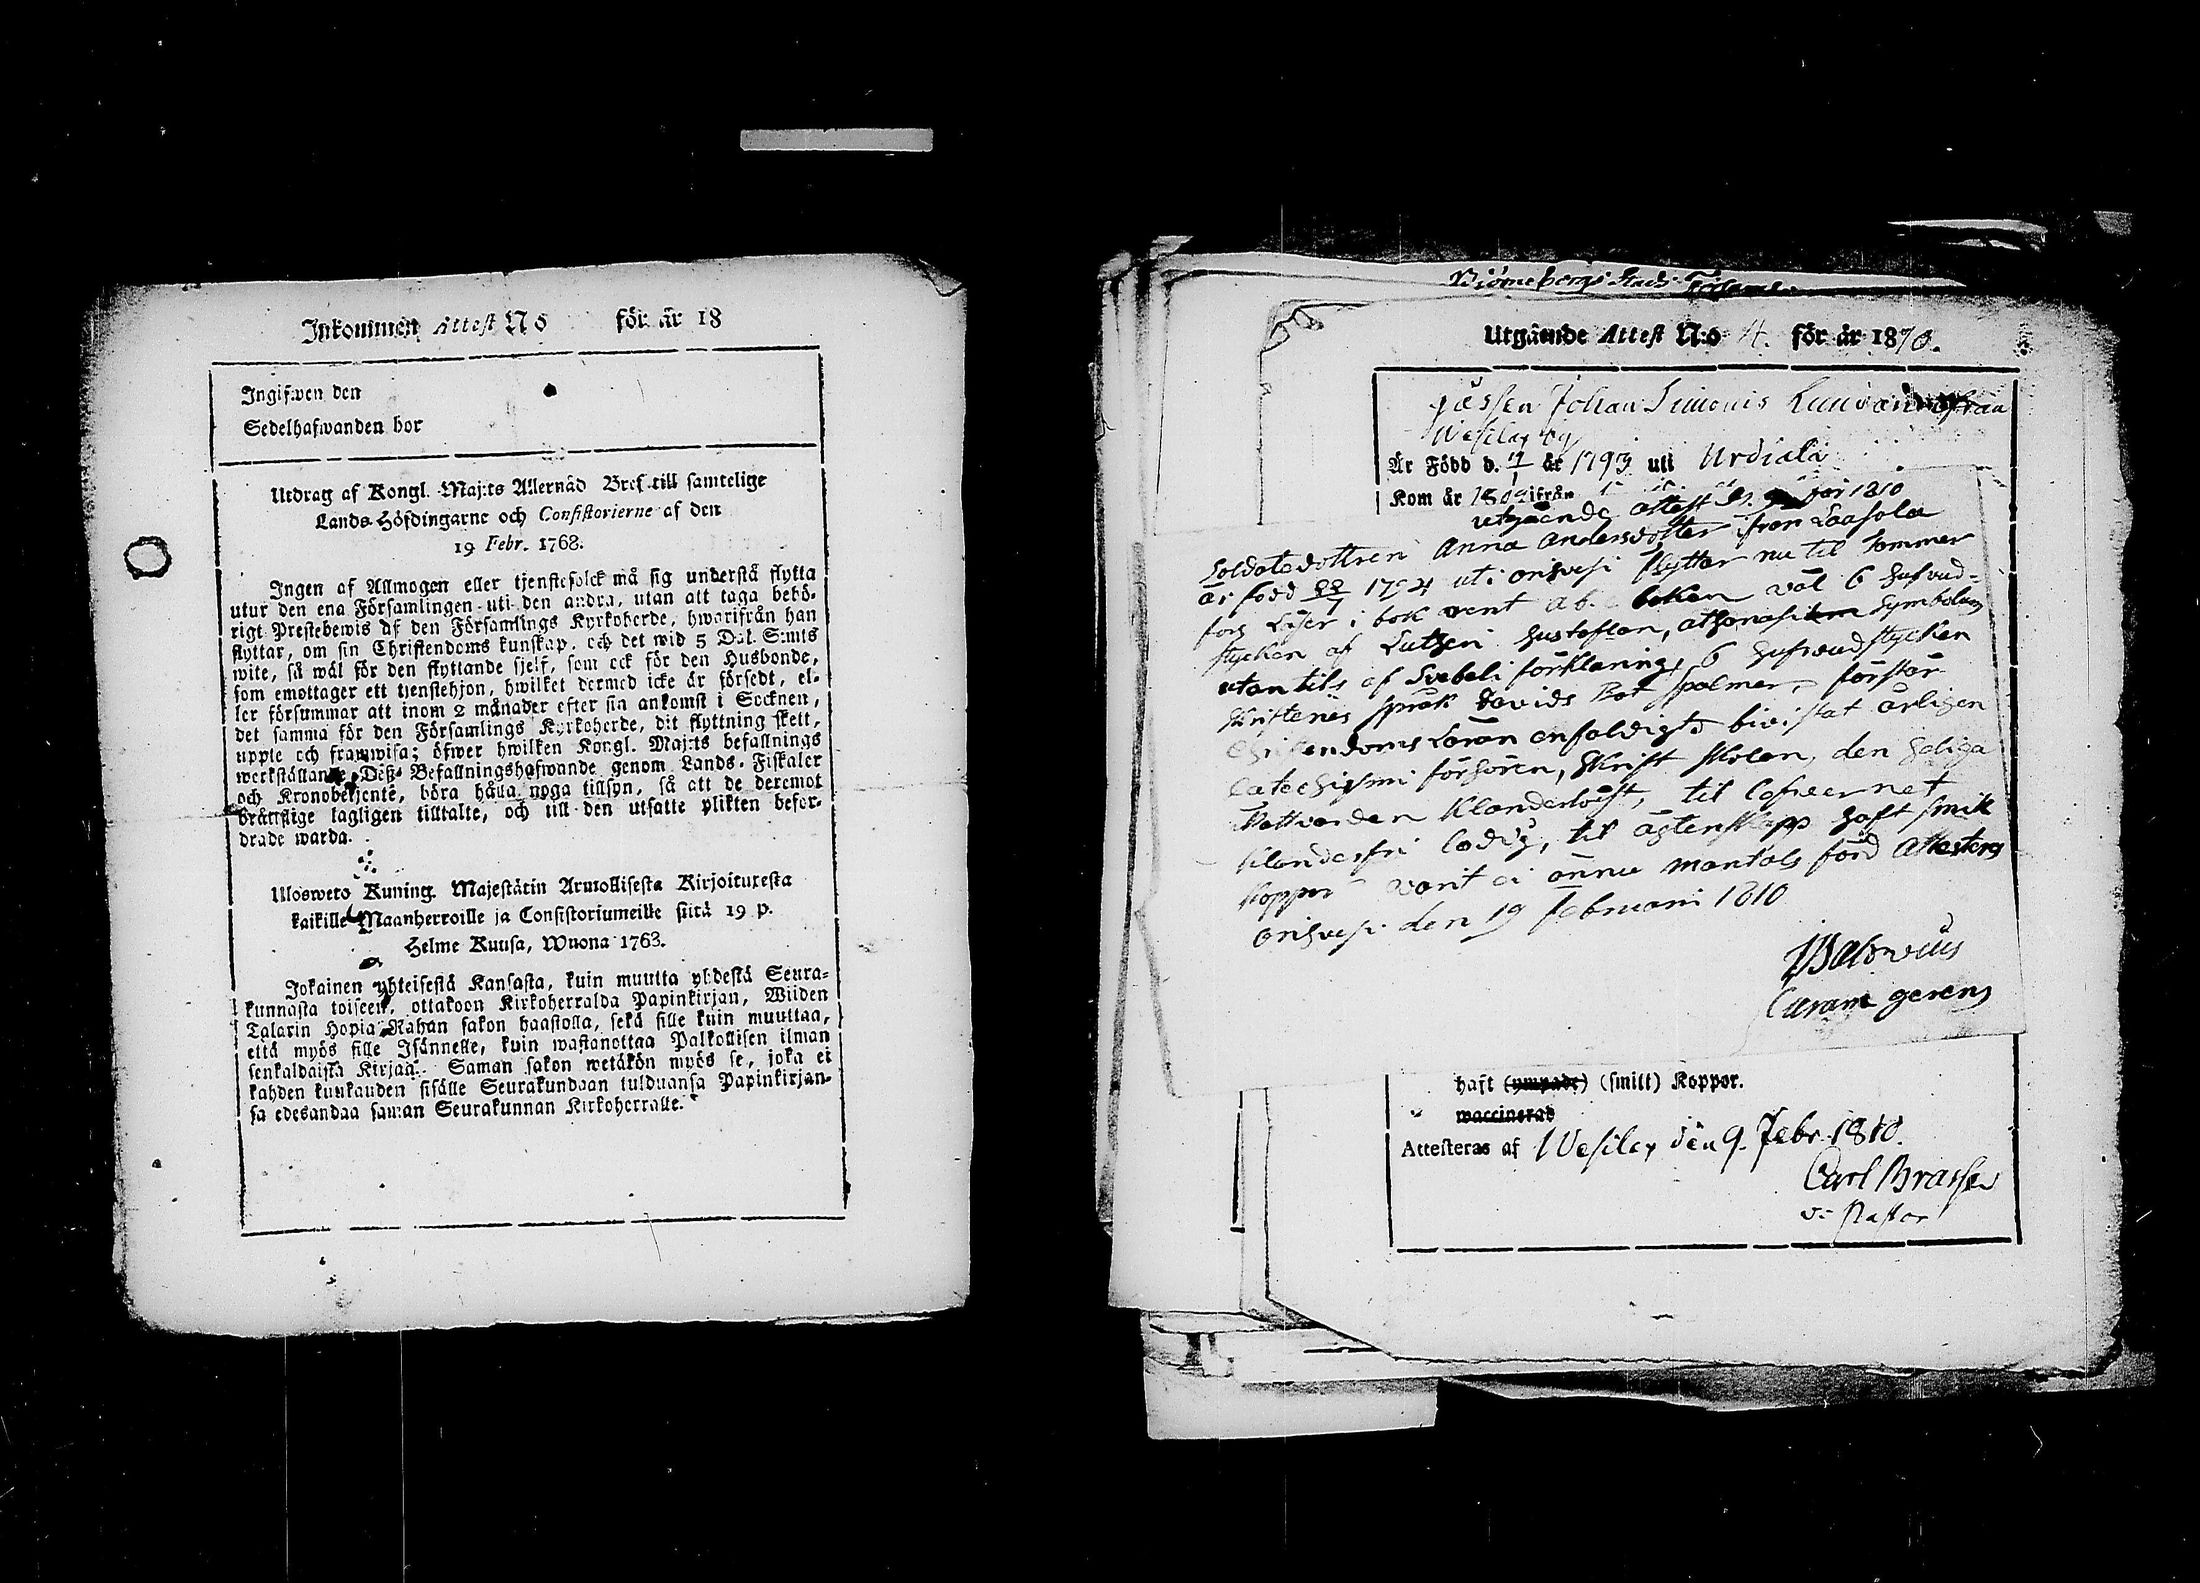 Inkommen Attest No för år 18
Ingifwen den
Sedelhafwanden bor
Utdrag af Kongl. Maj:ts Allernåd Bref till samtelige
Lands-Höfdingarne och Consistorierne af den
19 Febr. 1768.
Ingen af Allmogen eller tjenstefolck må sig understå flytta
utur den ena Församlingen uti den andra, utan att taga behö-
rigt Prestebewis af den Församlings Kyrkoherde, hwarifrån han
flyttar, om sin Christendoms kunskap, och det wid 5 Dal. S:mts
wite, så wäl för den flyttande sjelf, som ock för den Husbonde,
som emottager ett tjenstehjon, hwilket dermed icke är försedt, el-
ler försummar att inom 2 månader efter sin ankomst i Socknen,
det samma för den Församlings Kyrkoherde, dit flyttning skett,
uppte och framwisa; öfwer hwilken Kongl. Maj:ts befallnings
werkställande Deß Befallningshafwande genom Lands-Fiskaler
och Kronobetjente, böra hålla noga tillsyn, så att de deremot
bråttslige lagligen tilltalte, och till den utsatte plikten befor-
drade warda.
Ulosweto Kuning. Majestätin Armollisesta Kirjoituxesta
kaikille Maanherroille ja Consistoriumeille siitä 19 p.
Helme Kuusa, Wuona 1768.
Jokainen yhteisestä Kansasta, kuin muutta yhdestä Seura-
kunnasta toiseen, ottakoon Kirkoherralda Papinkirjan, Wiiden
Talarin Hopia Rahan sakon haastolla, sekä sille kuin muuttaa,
että myös sille Isännelle, kuin wastanottaa Palkollisen ilman
senkaldaista Kirjaa. Saman sakon wetäkön myös se, joka ei
kahden kuukauden sisälle Seurakundaan tulduansa Papinkirjan-
sa edesandaa saman Seurakunnan Kirkoherralle.
Björneborgs Stads Församl.
Utgående Attest N:o 4. för år 1810.
Johan Simonis ifrån
Wesilax
Är Född d. 7/1 år 1793 uti Urdiala
Kom år 1809 ifrån
utgående attest för 1810
Soldatedottren Anna Andersdotter ifrån Laasola
är född 22/7 1794 uti orihvesi flyttar nu til Tommer
fors Läser i bok rent a b c boken väl 6 hufvud-
stycken af Lutheri Hustaflan, athanasi Symbolum
utan tils af Svebeli förklaring 6 hufvudstycken
Skriftenes språk Davids Bot psalmer, förstår
Christendoms Läran enfaldigt bivistat årligen
Catechismi förhören, Skrift skolan, den Heliga
Nattvarden Klanderlöst, til Lefvernet
Klanderfri Ledig, til ägtenskapp haft smitt
koppor varit ei ännu mantals förd Attesters
orihvesi den 19 februari 1810
Curam gerens
haft (ympade) (smitt) Koppor.
waccinerad
Attesteras af Wesilax den 9. Febr. 1810.
Carl Brasser
v. Pastor